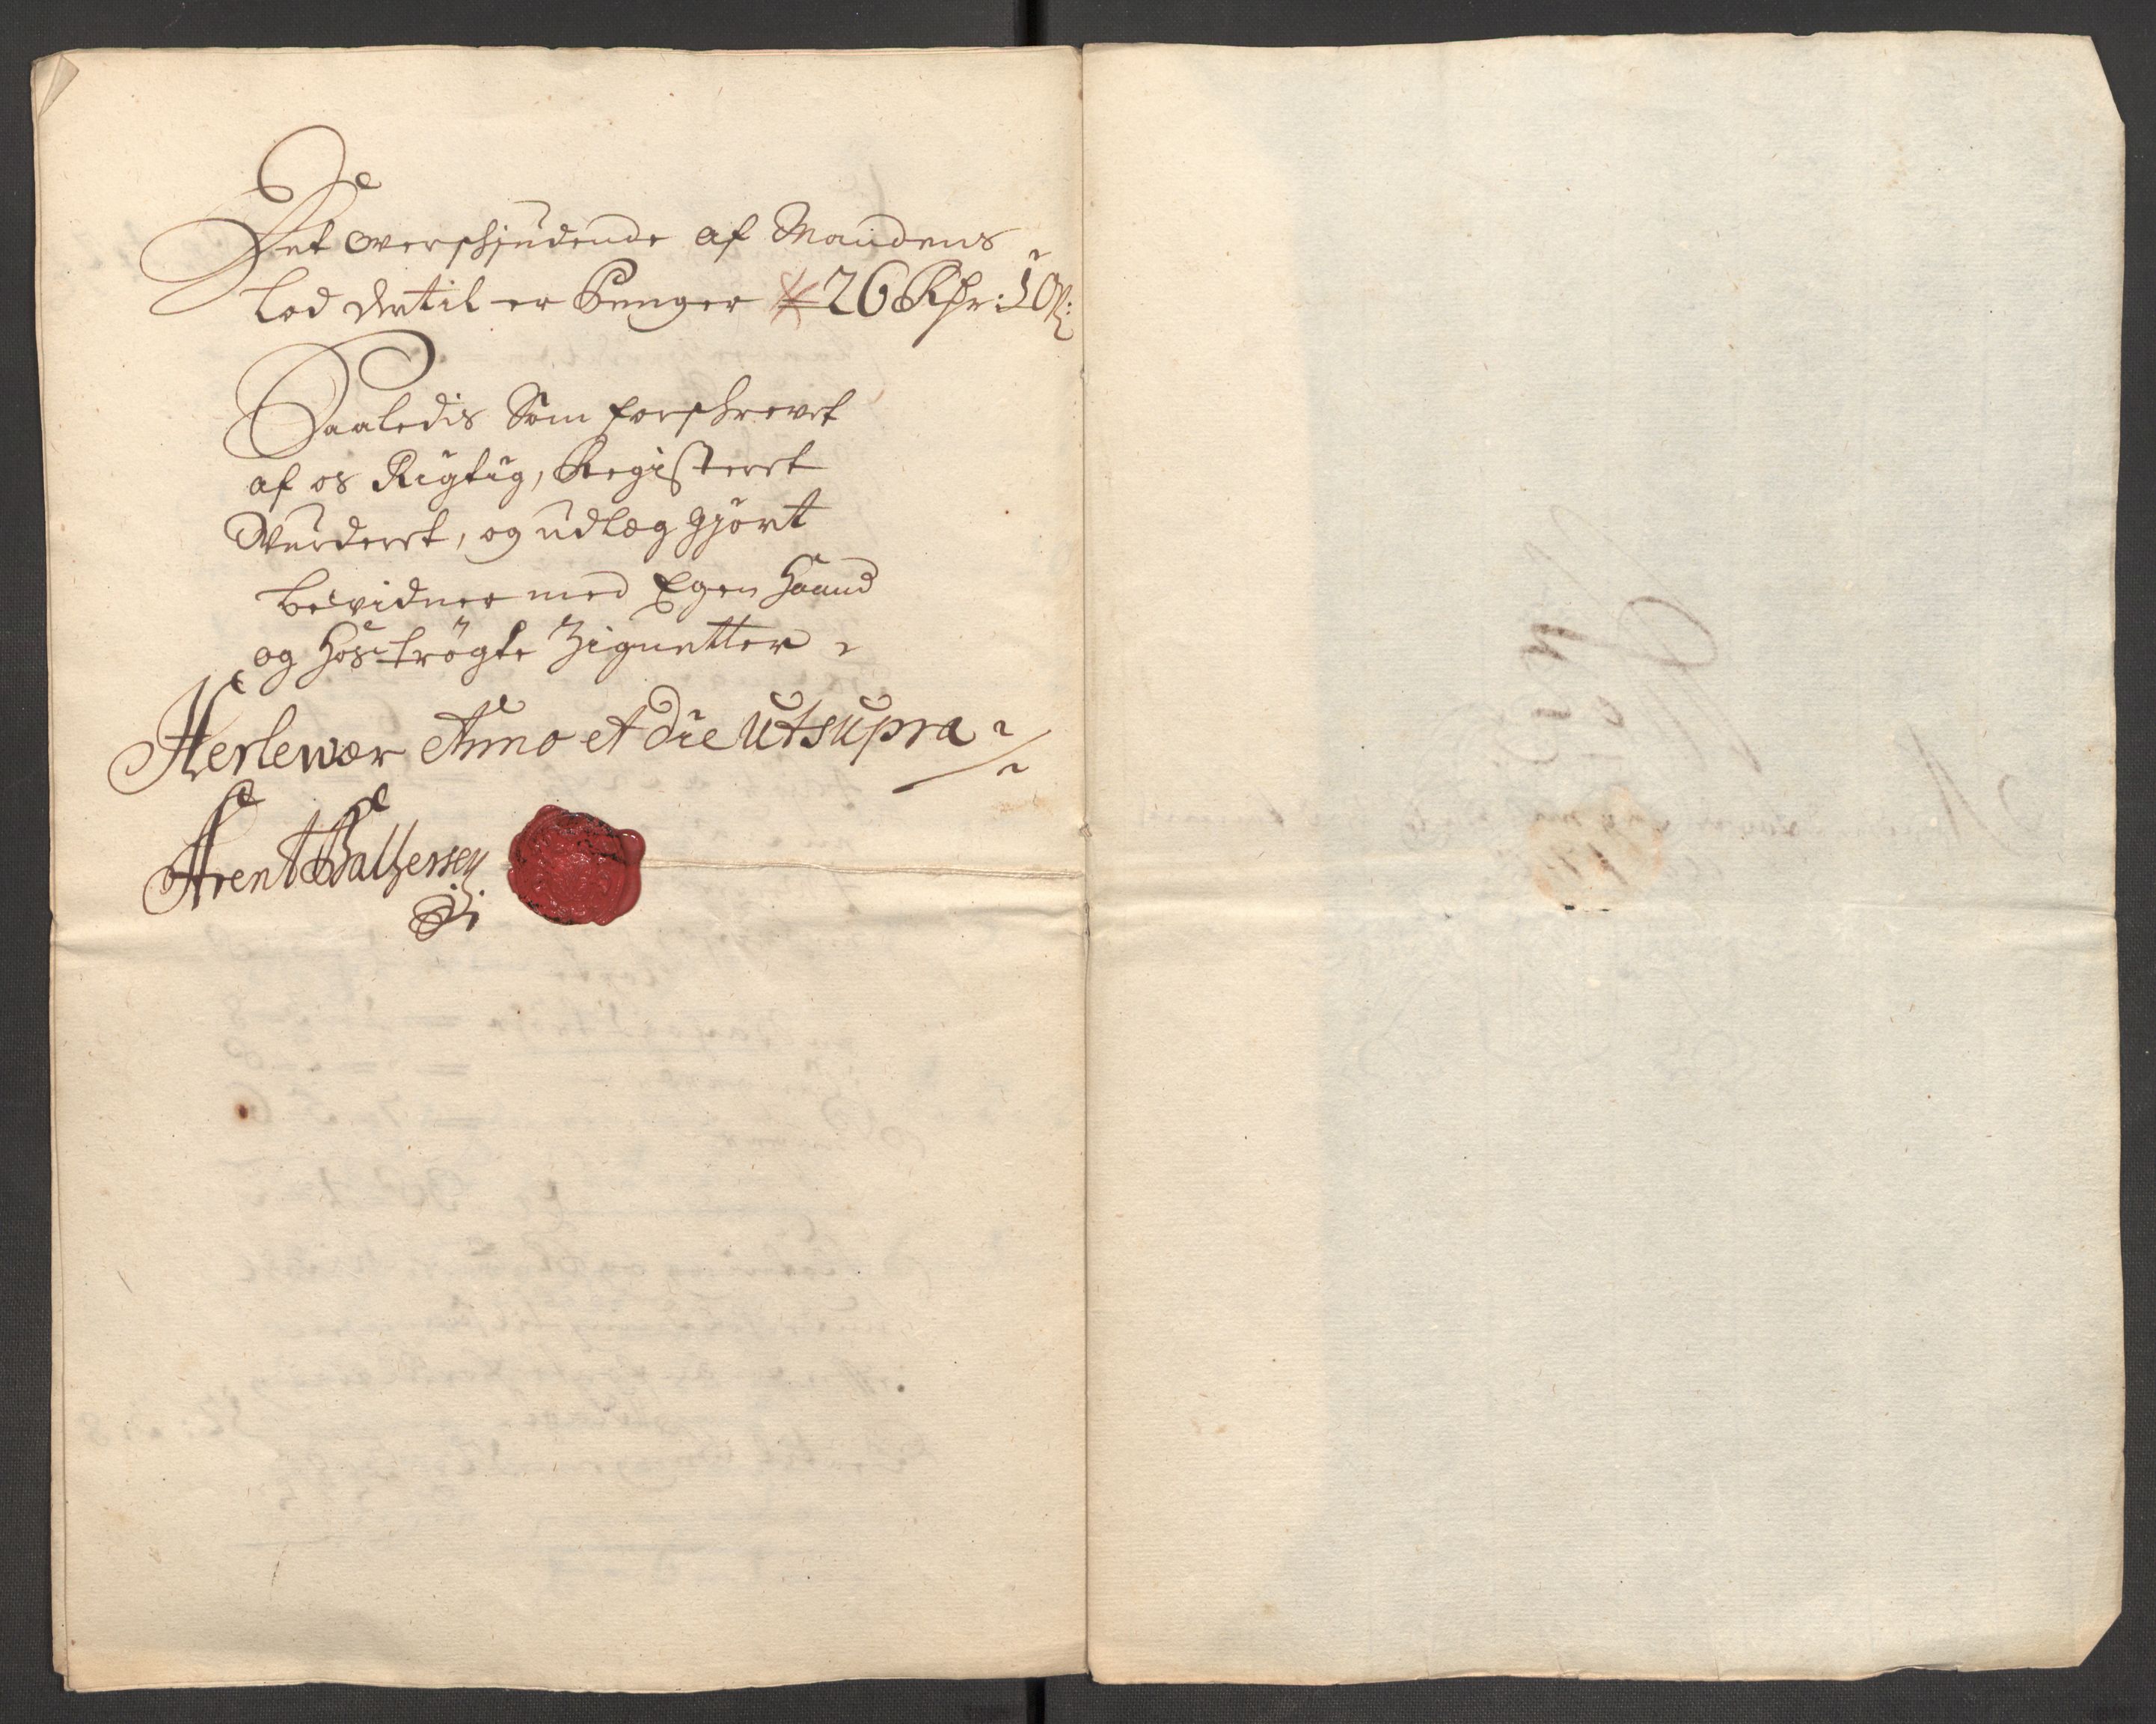 Det overskiudende af Mandens
Lod dertil er Penger 26 Rdr: 10 ß:
Saaledis Som forskrevet
af os Rigtig, Registeret
Wurderet, og udlæg giört
bevidner med Egen Haand
og Hos-trögte Zignetter
Herlewær Anno et die utsupra
Arent Baltzersen